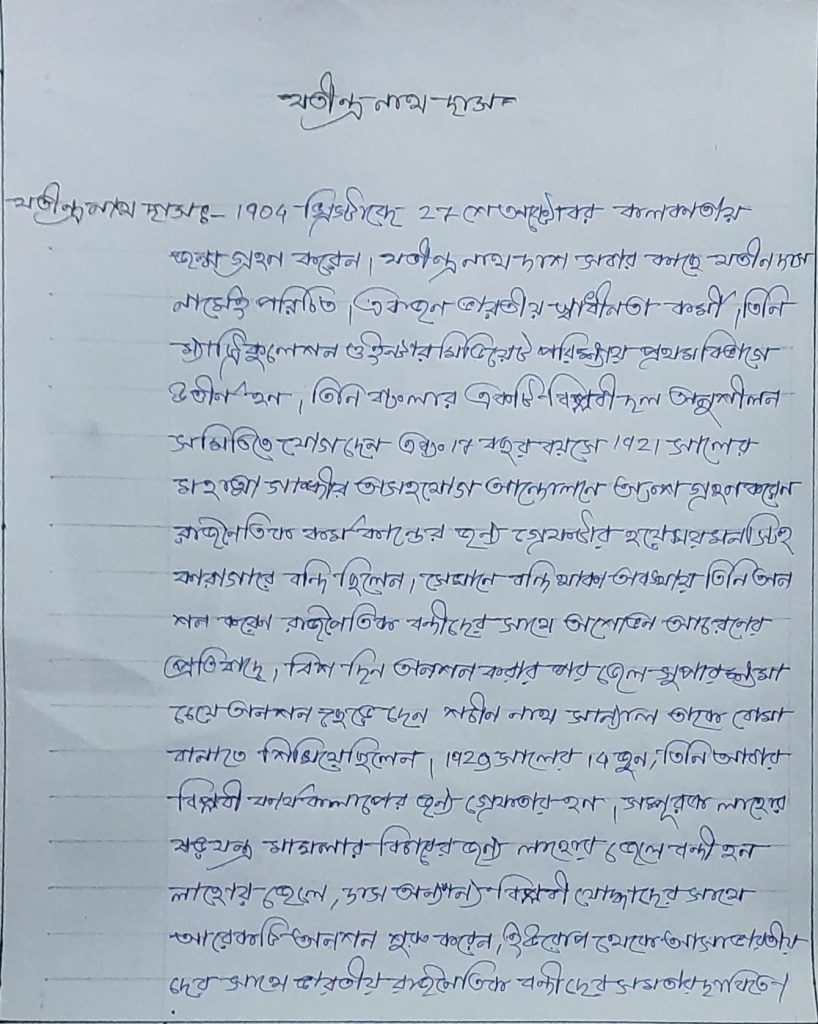 যতীন্দ্র নাথ দাস
যতীন্দ্রনাথ দাসঃ- 1904 খ্রিস্টাব্দে 27 শে অক্টোবর কলকাতায়
জন্ম গ্রহন করেন। যতীন্দ্র নাথ দাশ সবার কাছে যতীন দাস
নামেই পরিচিত, একজন ভারতীয় স্বাধীনতা কর্মী, তিনি
ম্যাট্রিকুলেশন ও ইন্টারমিডিয়েট পরিক্ষায় প্রথম বিভাগে
উত্তীর্ন হন, তিনি বাংলার একটি বিপ্লবী দল অনুশীলন
সমিতিতে যোগ দেন এবং 17 বছর বয়সে 1921 সালের
মহাত্মা গান্ধীর অসহযোগ আন্দোলনে অংশ গ্রহন করেন
রাজনৈতিক কর্ম কান্ডের জন্য গ্রেফতার হয়ে ময়মনসিংহ
কারাগারে বন্দি ছিলেন, সেখানে বন্দি থাকা অবস্থায় তিনি অন
শন করেন রাজনৈতিক বন্দীদের সাথে অশোভন আচরনের
প্রতিবাদে, বিশ দিন অনশন করার পর জেল সুপার ক্ষমা
চেয়ে অনশন ছেড়ে দেন শচীন নাথ সান্যাল তাকে বোমা
বানাতে শিখিয়েছিলেন, 1929 সালের 14 জুন, তিনি আবার
বিপ্লবী কার্যকলাপের জন্য গ্রেফতার হন, সম্পূরক লাহোর
ষড়যন্ত্র মামলার বিচারের জন্য লাহোর জেলে বন্দী হন
লাহোর জেলে, দাস অন্যান্য বিপ্লবী যোদ্ধাদের সাথে
আরেকটি অনশন শুরু করেন, ইউরোপ থেকে আসা ভারতীয়
দের সাথে ভারতীয় রাজনৈতিক বন্দীদের সমতার দাবিতে।